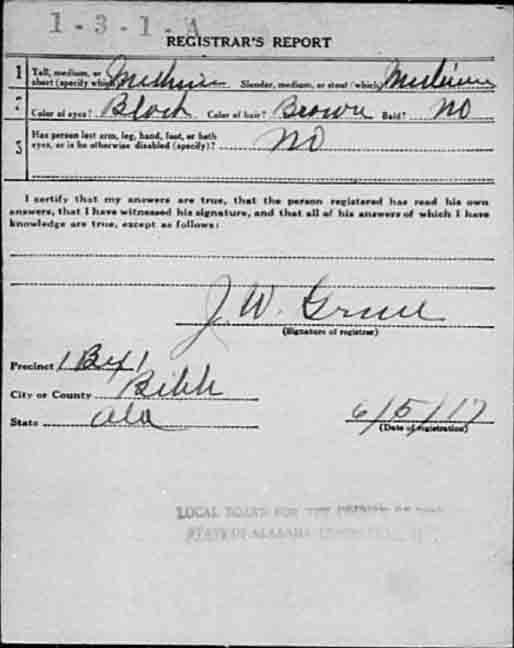 1 - 3 - 1 - A
REGISTRAR'S REPORT
1 Tall, medium, or short (specify which) Medium Slender, medium, or stout (which) Medium
2 Color of eyes? Black Color of hair? Brown Bald? NO
3 Has person lost arm, leg, hand, foot, or both
eyes, or is he otherwise disabled (specify)? NO
I certify that my answers are true, that the person registered has read his own
answers, that I have witnessed his signature, and that all of his answers of which I have
knowledge are true, except as follows:
J. W.
(Signature of registrar)
Precinct 1
City or County Bibb
State Ala
6/5/17
(Date of registration)
LOCAL BOARD FOR THE
STATE OF ALABAMA